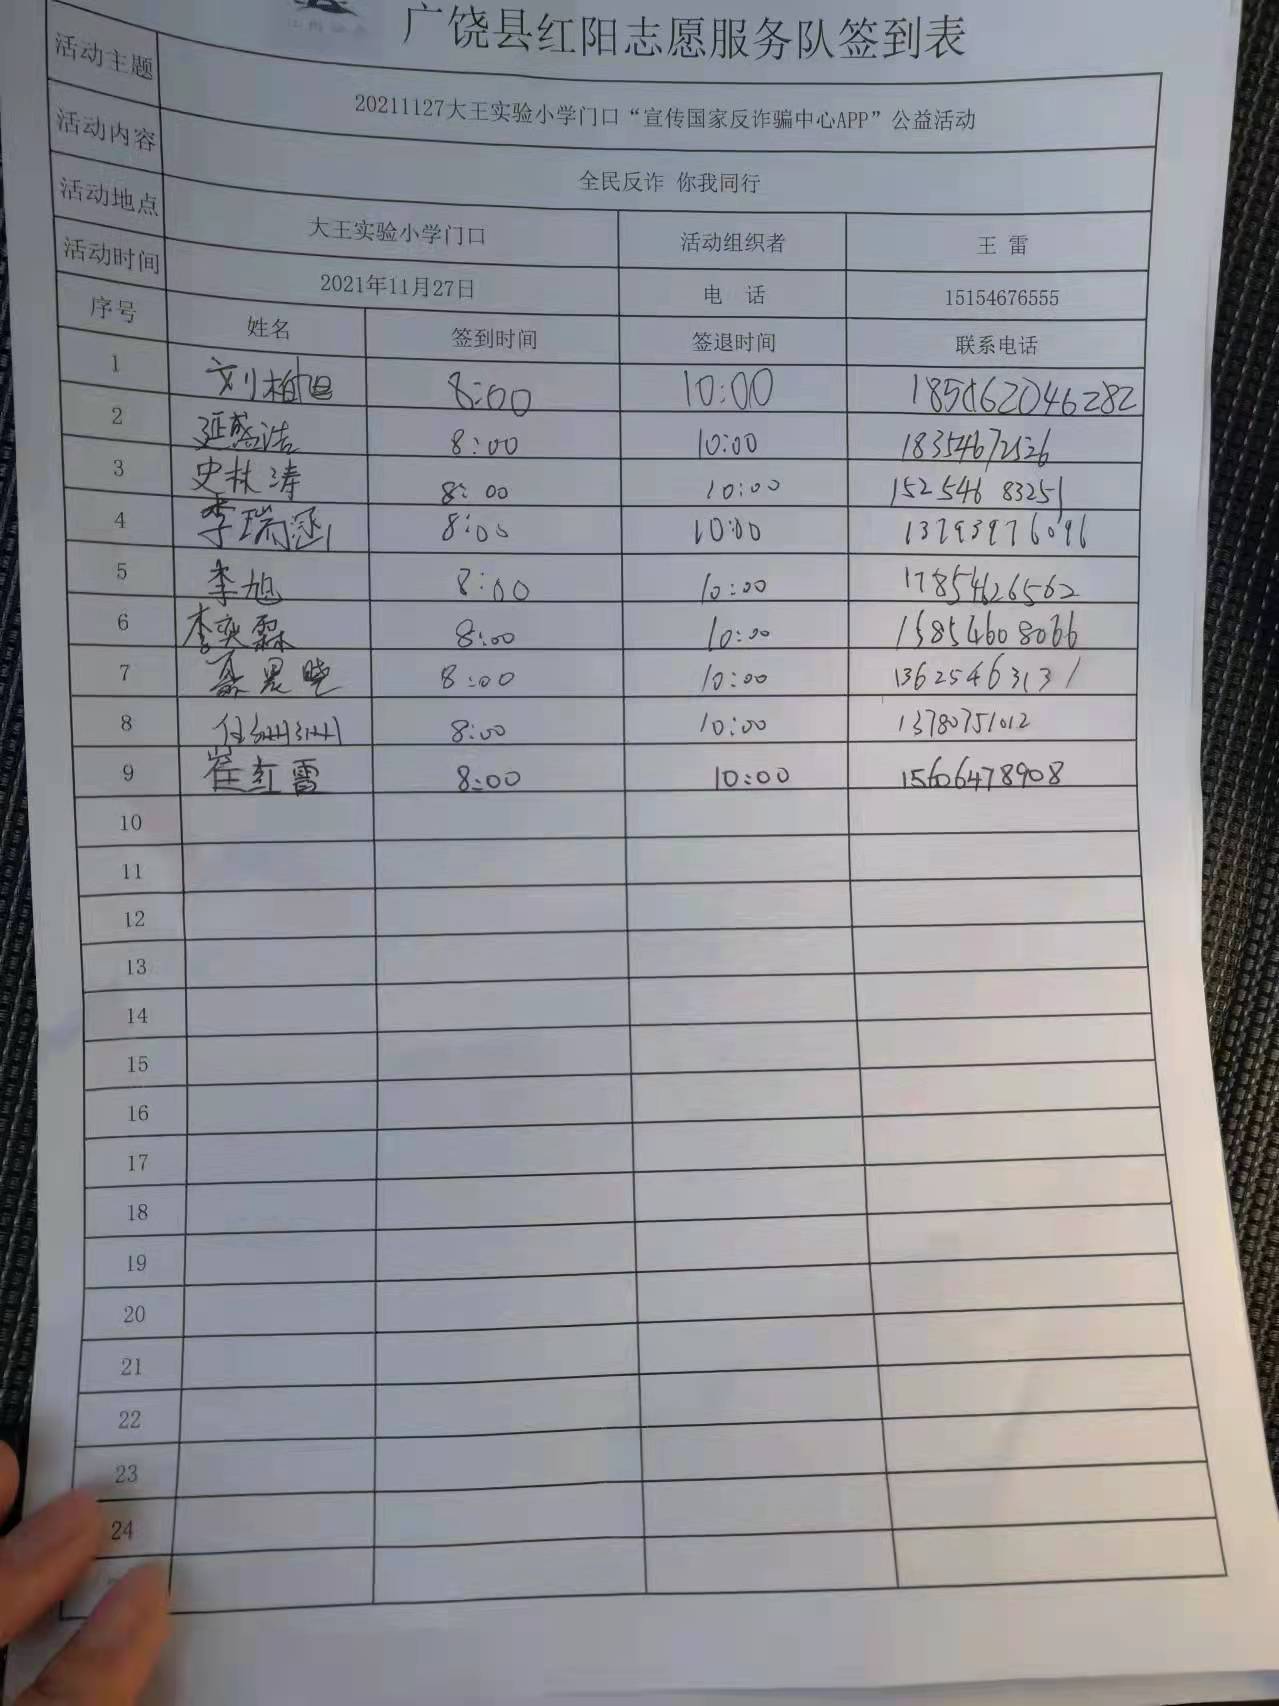 广饶县红阳志愿服务队签到表
活动主题 20211127大王实验小学门口“宣传国家反诈骗中心APP”公益活动
活动内容 全民反诈 你我同行
活动地点 大王实验小学门口 活动组织者 王 雷
活动时间 2021年11月27日 电 话 15154676555
序号 姓名 签到时间 签退时间 联系电话
1 刘柏旭 8:00 10:00
2 延盛浩 8:00 10:00 18354672526
3 史林涛 8:00 10:00 15254683251
4 李瑞涵 8:00 10:00 13793976096
5 李旭 8:00 10:00 17854626562
6 李奕霖 8:00 10:00 15854608066
7 聂晨晓 8:00 10:00 13625463131
8 8:00 10:00 13780751012
9 崔红雷 8:00 10:00 15606478908
10
11
12
13
14
15
16
17
18
19
20
21
22
23
24